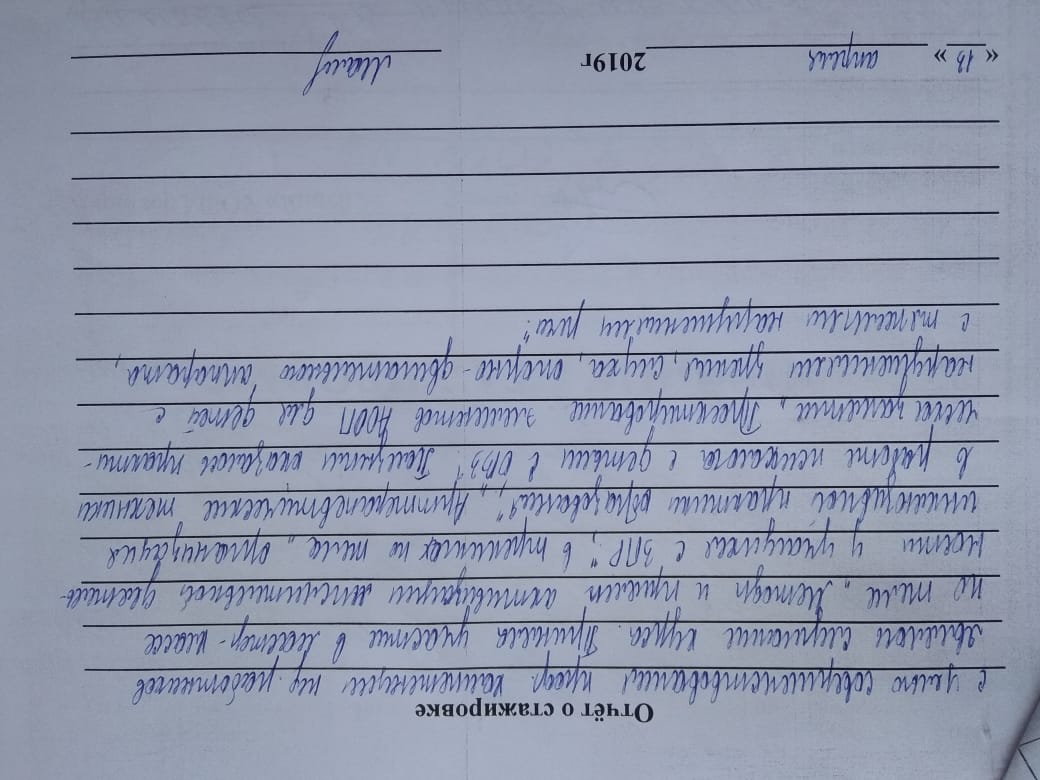 Отчёт о стажировке
с целью совершенствования проф. компетенции пед. работников
являлся слушание курса. Приняла участие в мастер-классе
по теме „Методы и приемы активизации мыслительной деятель-
ности у учащихся с ЗПР", в тренингах по теме „Организация
инклюзивной практики образования", „Арттерапевтические техники
в работе психолога с детьми с ОВЗ". Полезными оказались практи-
ческие занятия „Проектирование элементов АООП для детей с
нарушениями зрения, слуха, опорно-двигательного аппарата,
с тяжелыми нарушениями речи".
« 13 » апреля 2019г